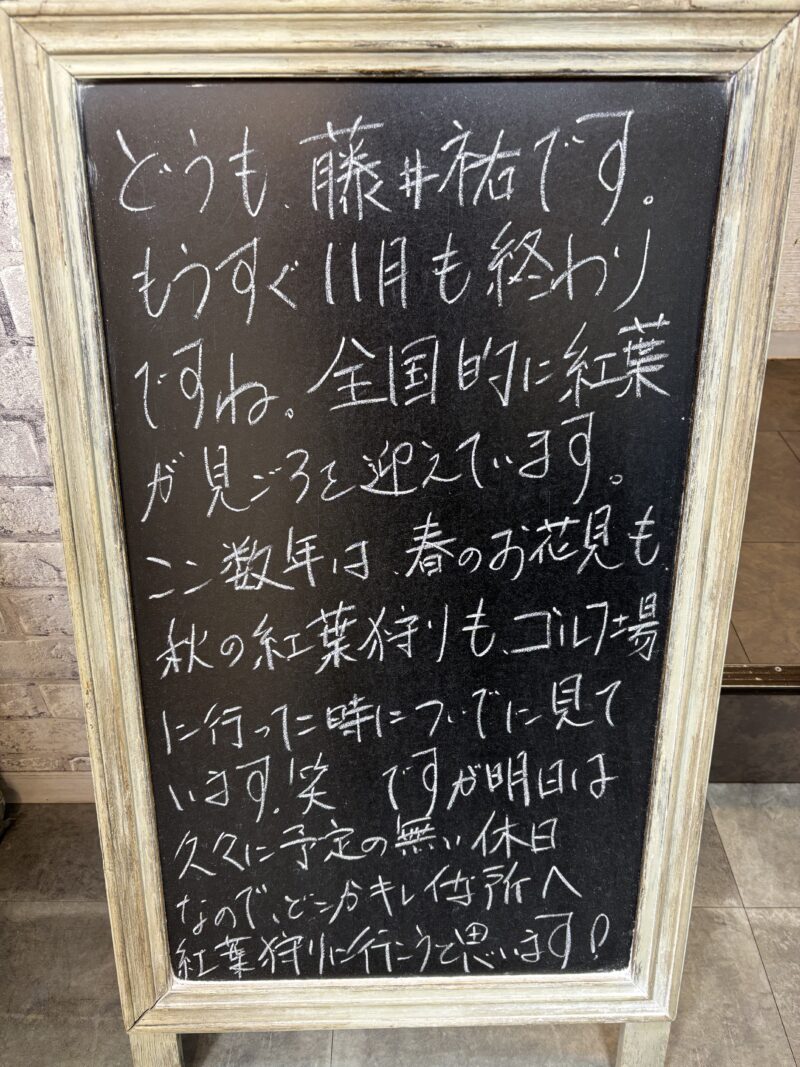 どうも、藤井祐です。
もうすぐ11月も終わり
ですね。全国的に紅葉
が見ごろを迎えています。
ここ数年は、春のお花見も
秋の紅葉狩りも、ゴルフ場
に行った時についでに見て
います。笑　ですが明日は
久々に予定の無い休日
なので、どこかキレイな所へ
紅葉狩りに行こうて思います!